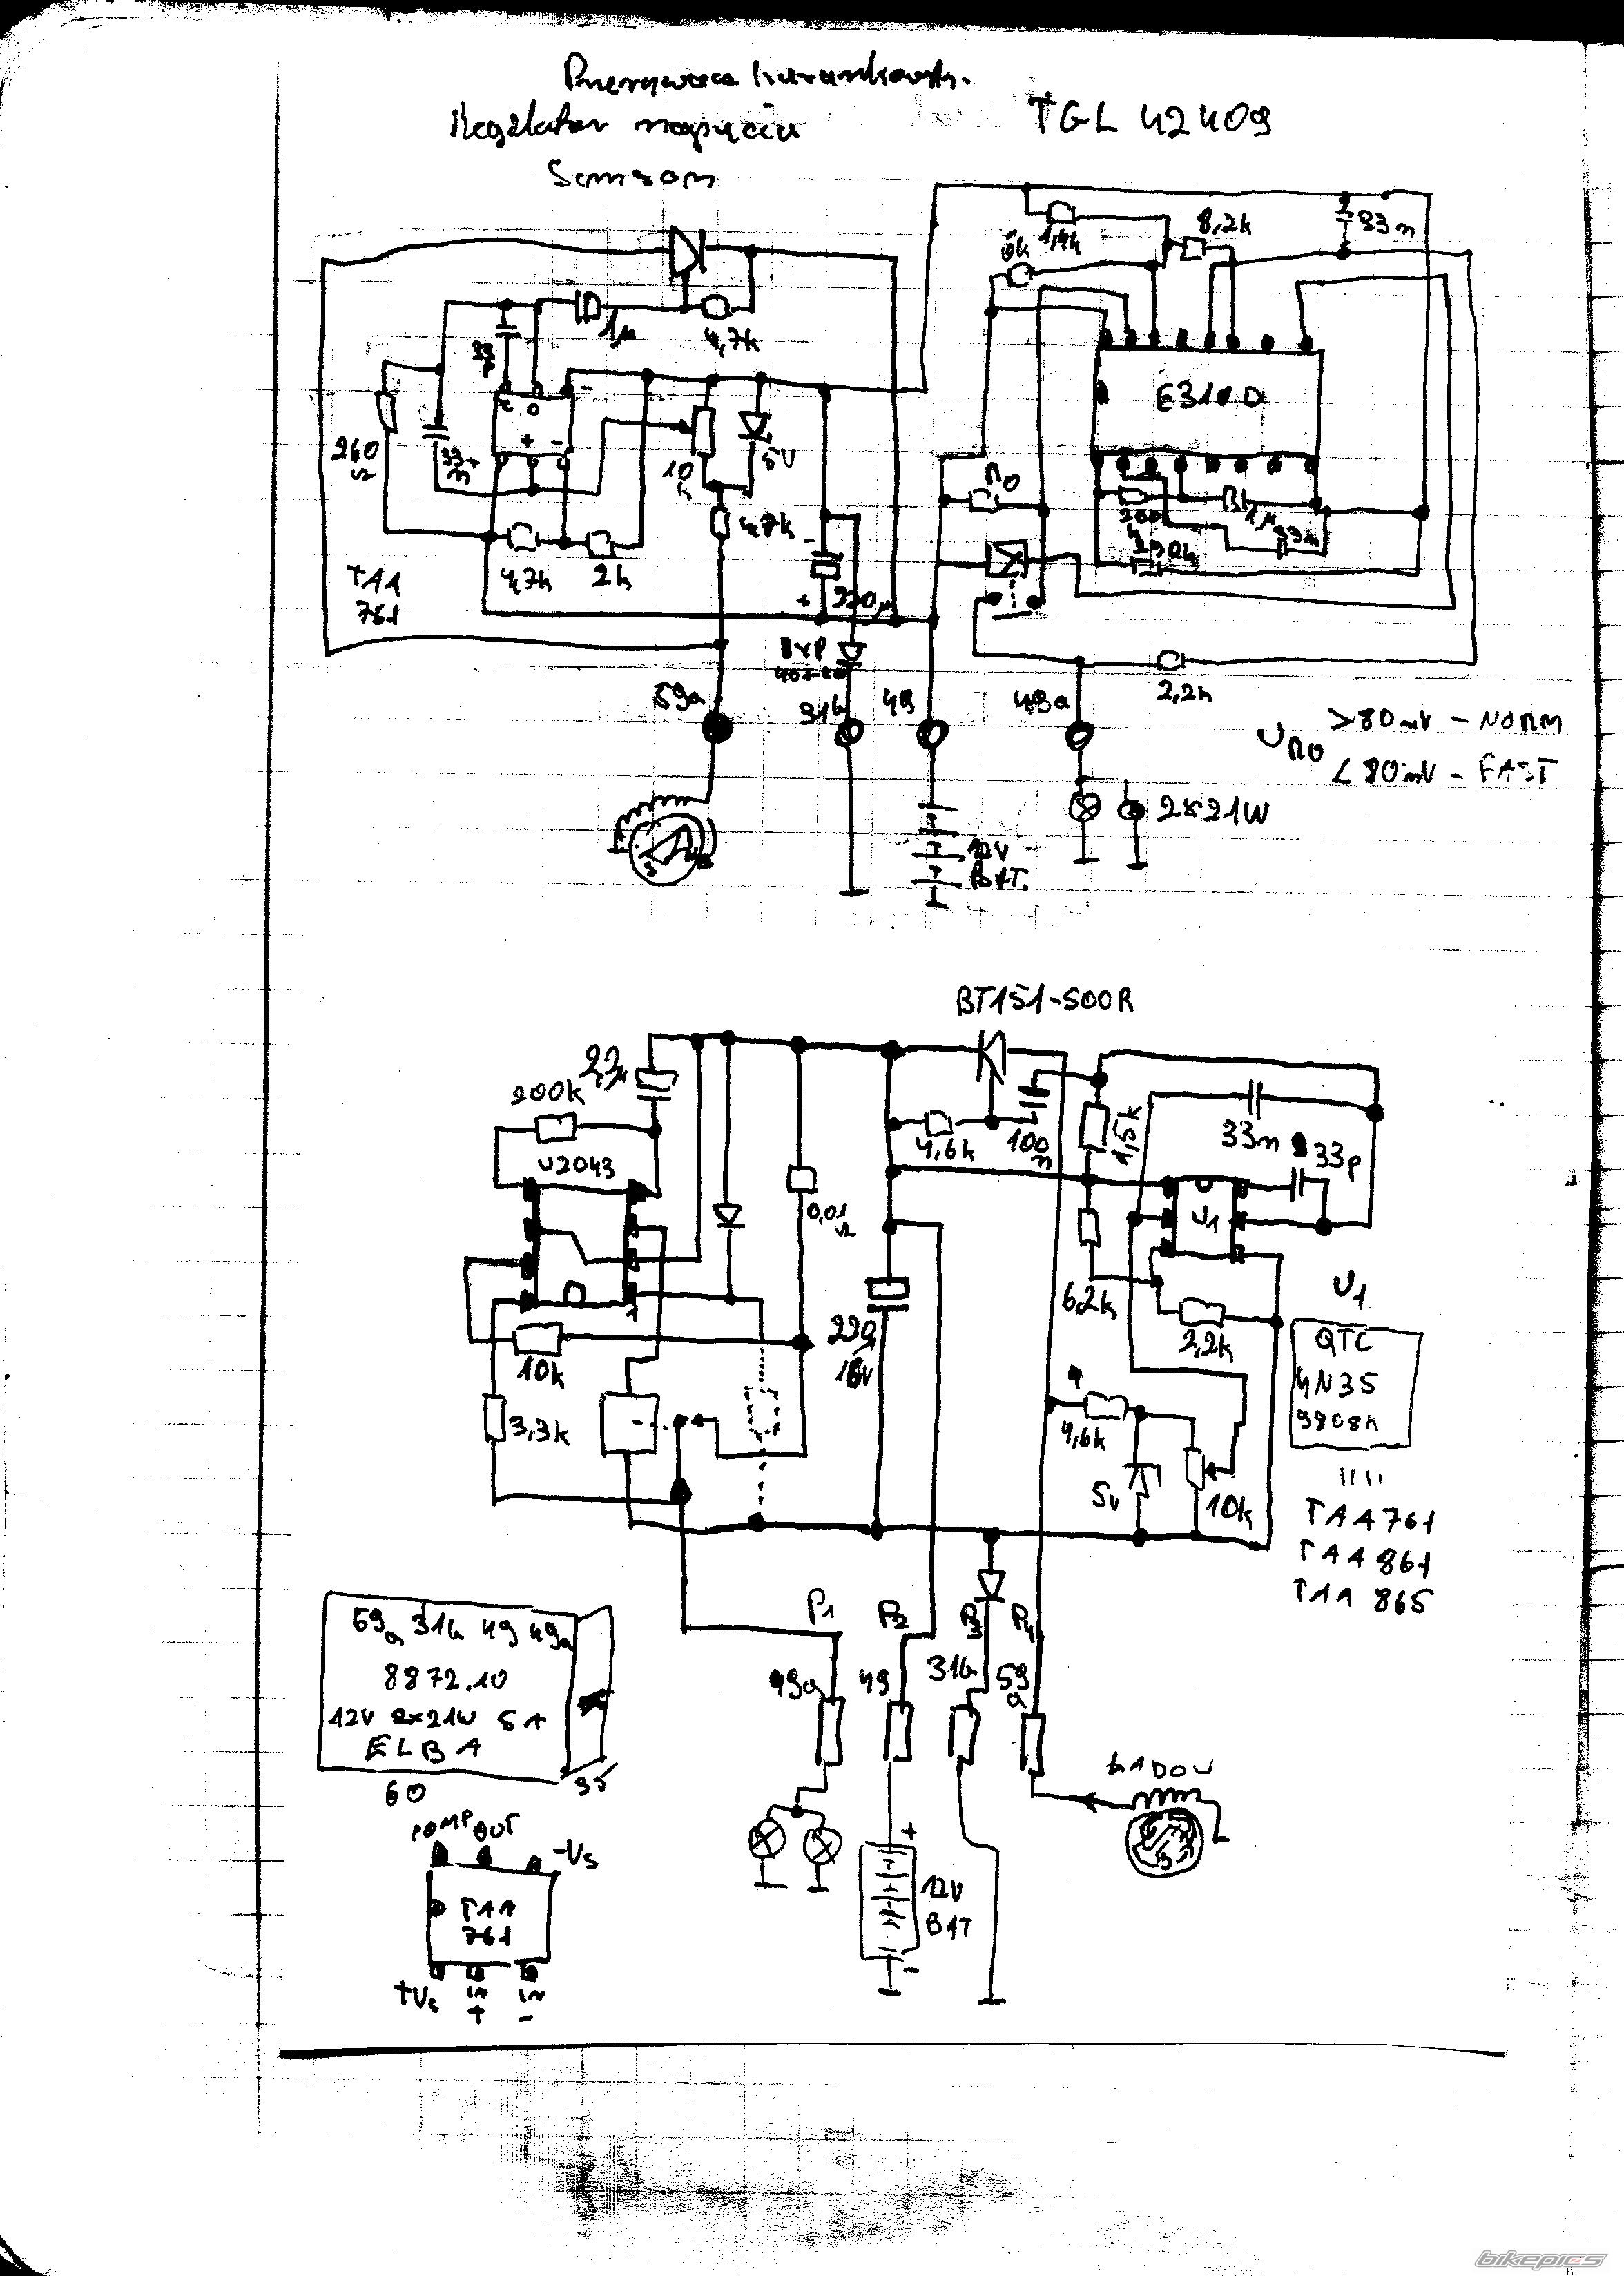 Regulator napięcia
TGL 42409
Samson
1,4k
8,2k
33n
1µ
4,7k
33
p
E310D
+
-
260
Ω
33
n
10
k
5V
R0
200
k
1µ
33n
4,7k
4,7k
2k
TAA
761
+
220µ
BYP
59a
31b
49
49a
2,2k
U R0
>80mV - NORM
<80mV - FAST
2x21W
12V
BAT.
BT151-500R
2,2µ
200k
U2043
4,6k
100
n
1,5k
33n
33p
0,01
Ω
U1
6,2k
2,2k
220
16V
10k
3,3k
U1
QTC
4N35
9808k
4,6k
5v
10k
TAA761
TAA 861
TAA 865
P1
P2
P3
P4
49a
49
31b
59
a
59a 31b 49 49a
8872.10
12V 2x21W 5A
ELBA
60
35
ŁADOW
+
12V
BAT
-
COMP OUT
-Vs
TAA
761
+Vs
IN
+
IN
-
bikepics